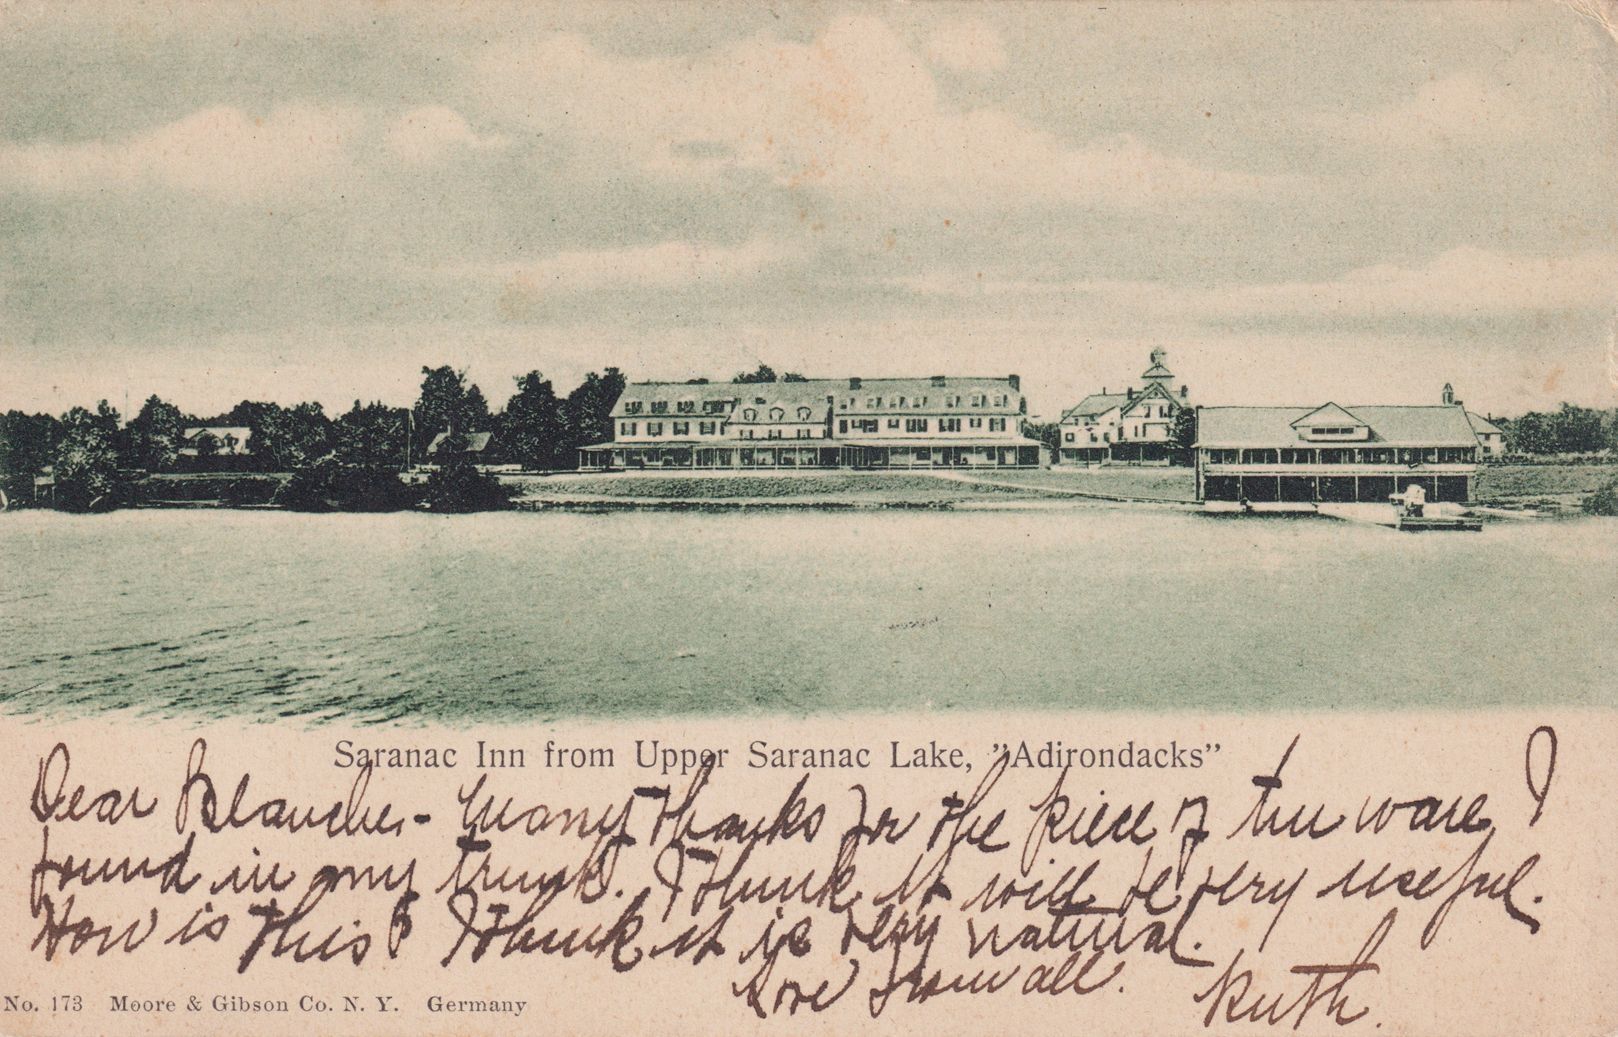 Saranac Inn from Upper Saranac Lake, "Adirondacks"
Dear Blanche - Many thanks for the piece of tin ware I
found in my trunk. I think it will be very useful.
How is this? I think it is very natural.
Love from all. Ruth.
No. 173 Moore & Gibson Co. N. Y. Germany